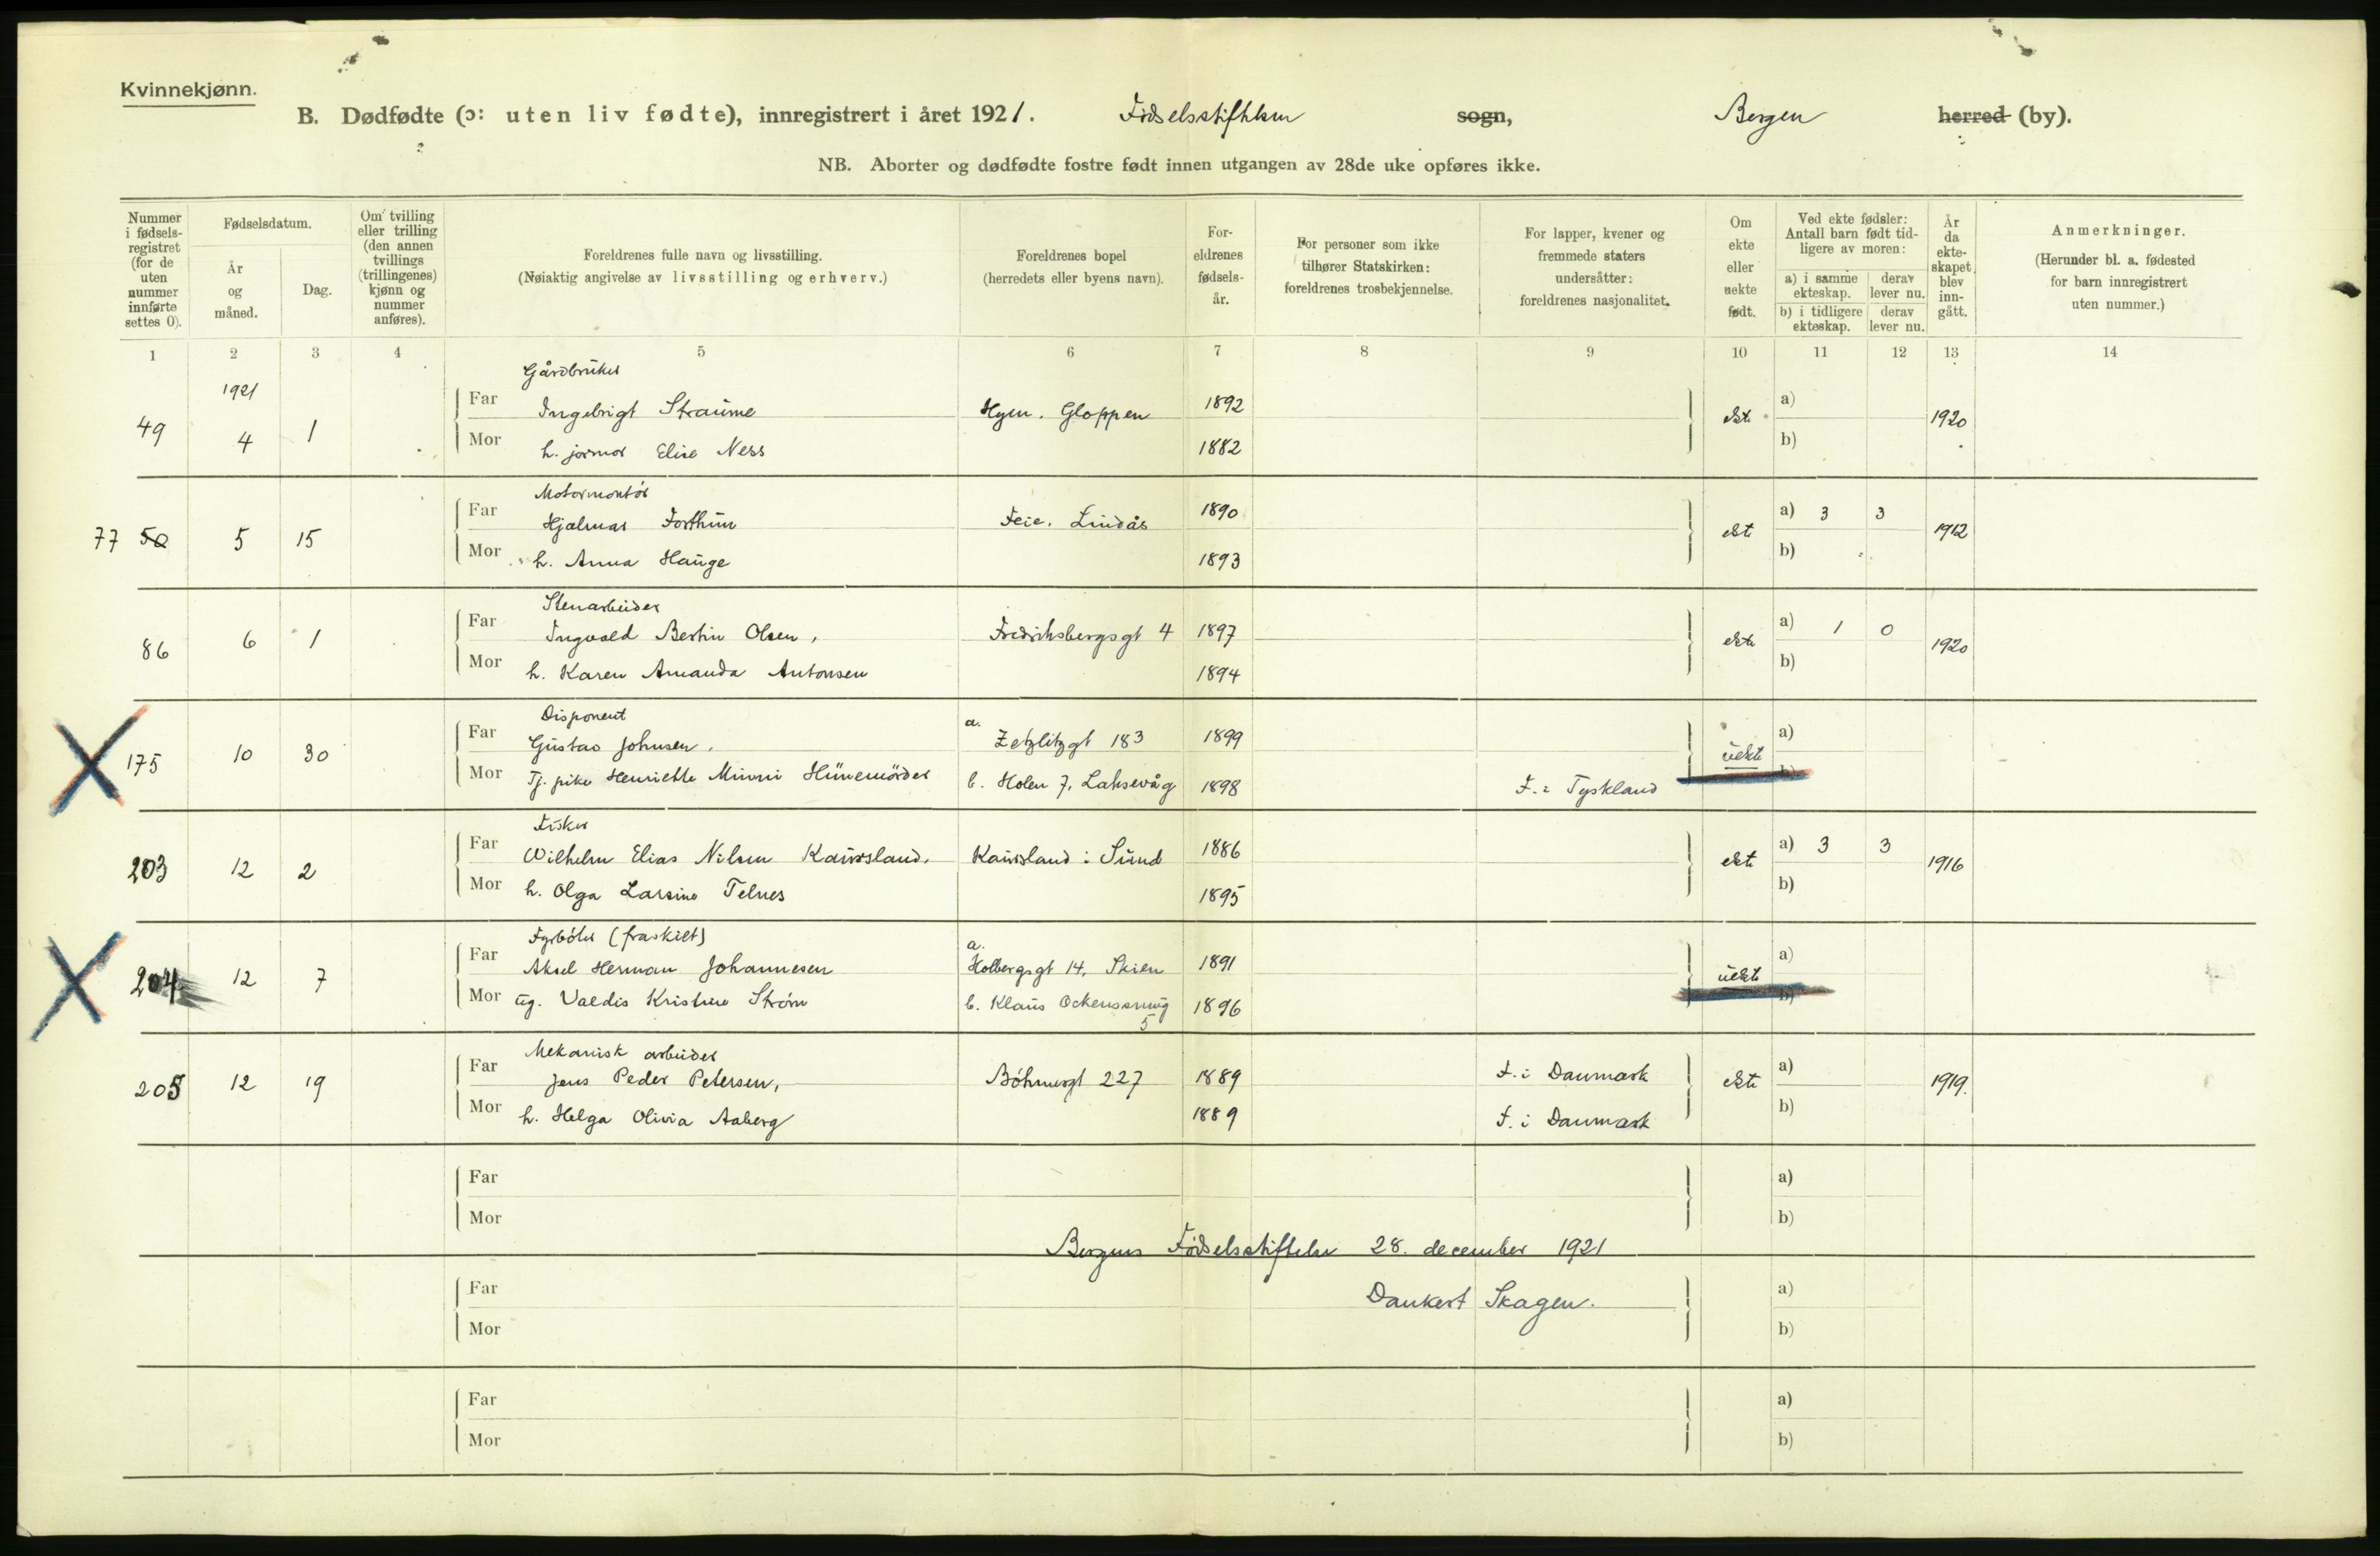 Kvinnekjønn.
B. Dødfødte (ɔ: uten liv fødte), innregistrert i året 1921. Fødselsstiftelsen sogn, Bergen herred (by).
NB. Aborter og dødfødte fostre født innen utgangen av 28de uke opføres ikke.
Nummer i fødsels-registret (for de uten nummer innførte settes 0).
Fødselsdatum.
År og måned.
Dag.
Om tvilling eller trilling (den annen tvillings (trillingenes) kjønn og nummer anføres).
Foreldrenes fulle navn og livsstilling.
(Nøiaktig angivelse av livsstilling og erhverv.)
Foreldrenes bopel
(herredets eller byens navn).
For-eldrenes fødsels-år.
For personer som ikke tilhører Statskirken: foreldrenes trosbekjennelse.
For lapper, kvener og fremmede staters undersåtter: foreldrenes nasjonalitet.
Om ekte eller uekte født.
Ved ekte fødsler: Antall barn født tid-ligere av moren:
a) i samme ekteskap. derav lever nu.
b) i tidligere ekteskap. derav lever nu.
År da ekte-skapet blev inn-gått.
Anmerkninger.
(Herunder bl. a. fødested for barn innregistrert uten nummer.)
1 2 3 4 5 6 7 8 9 10 11 12 13 14
Gårdbruker
1921
49 4 1 Far Ingebrigt Straume Hyen. Gloppen 1892 ekte a) 1920
Mor h. jormor Elise Ness 1882 b)
Motormontør
77 50 5 15 Far Hjalmar Forthun Feie. Lindås 1890 ekt a) 3 3 1912
Mor h. Anna Hauge 1893 b)
Stenarbeider
86 6 1 Far Ingvald Bertin Olsen, Fredriksbergsgt 4 1897 ekte a) 1 0 1920
Mor h. Karen Amanda Antonsen 1894 b)
Disponent
175 10 30 Far Gustav Johnsen. a. Zetzlitzgt 183 1899 uekte a)
Mor Tj. pike Henriette Minni Hünemörder b. Holen 7, Laksevåg 1898 F. i Tyskland b)
Fisker
203 12 2 Far Wilhelm Elias Nilsen Kausland. Kausland i Sund 1886 ekte a) 3 3 1916
Mor h. Olga Larsine Telnes 1895 b)
Fyrbøter (fraskilt)
204 12 7 Far Aksel Herman Johannesen a. Holbergsgt 14, Skien 1891 uekte a)
Mor ug. Valdis Kristine Strøm b. Klaus Ockenssmug 5 1896 b)
Mekanisk arbeider
205 12 19 Far Jens Peder Petersen, Bøhmergt 227 1889 F. i Danmark ekte a) 1919.
Mor h. Helga Olivia Aaberg 1889 F. i Danmark b)
Far a)
Mor b)
Bergens Fødselsstiftelse 28. december 1921
Far a)
Dankert Skagen.
Mor b)
Far a)
Mor b)